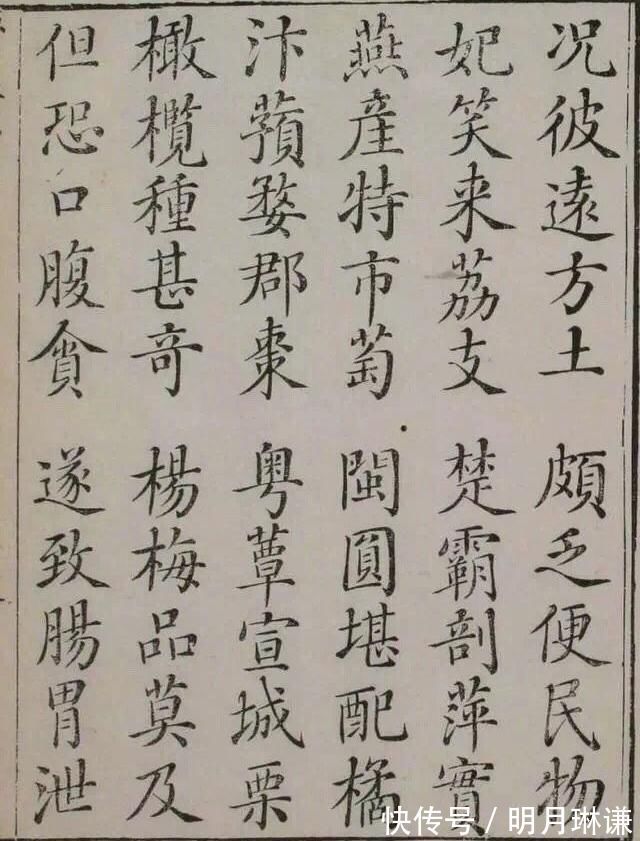 况彼遠方土 頗乏便民物
妃笑来荔支 楚霸剖萍實
燕產特市萄 閩圓堪配橘
汴蘋婺郡棗 粤蕈宣城栗
橄欖種甚奇 楊梅品莫及
但恐口腹貪 遂致腸胃泄
快传号/明月琳谦